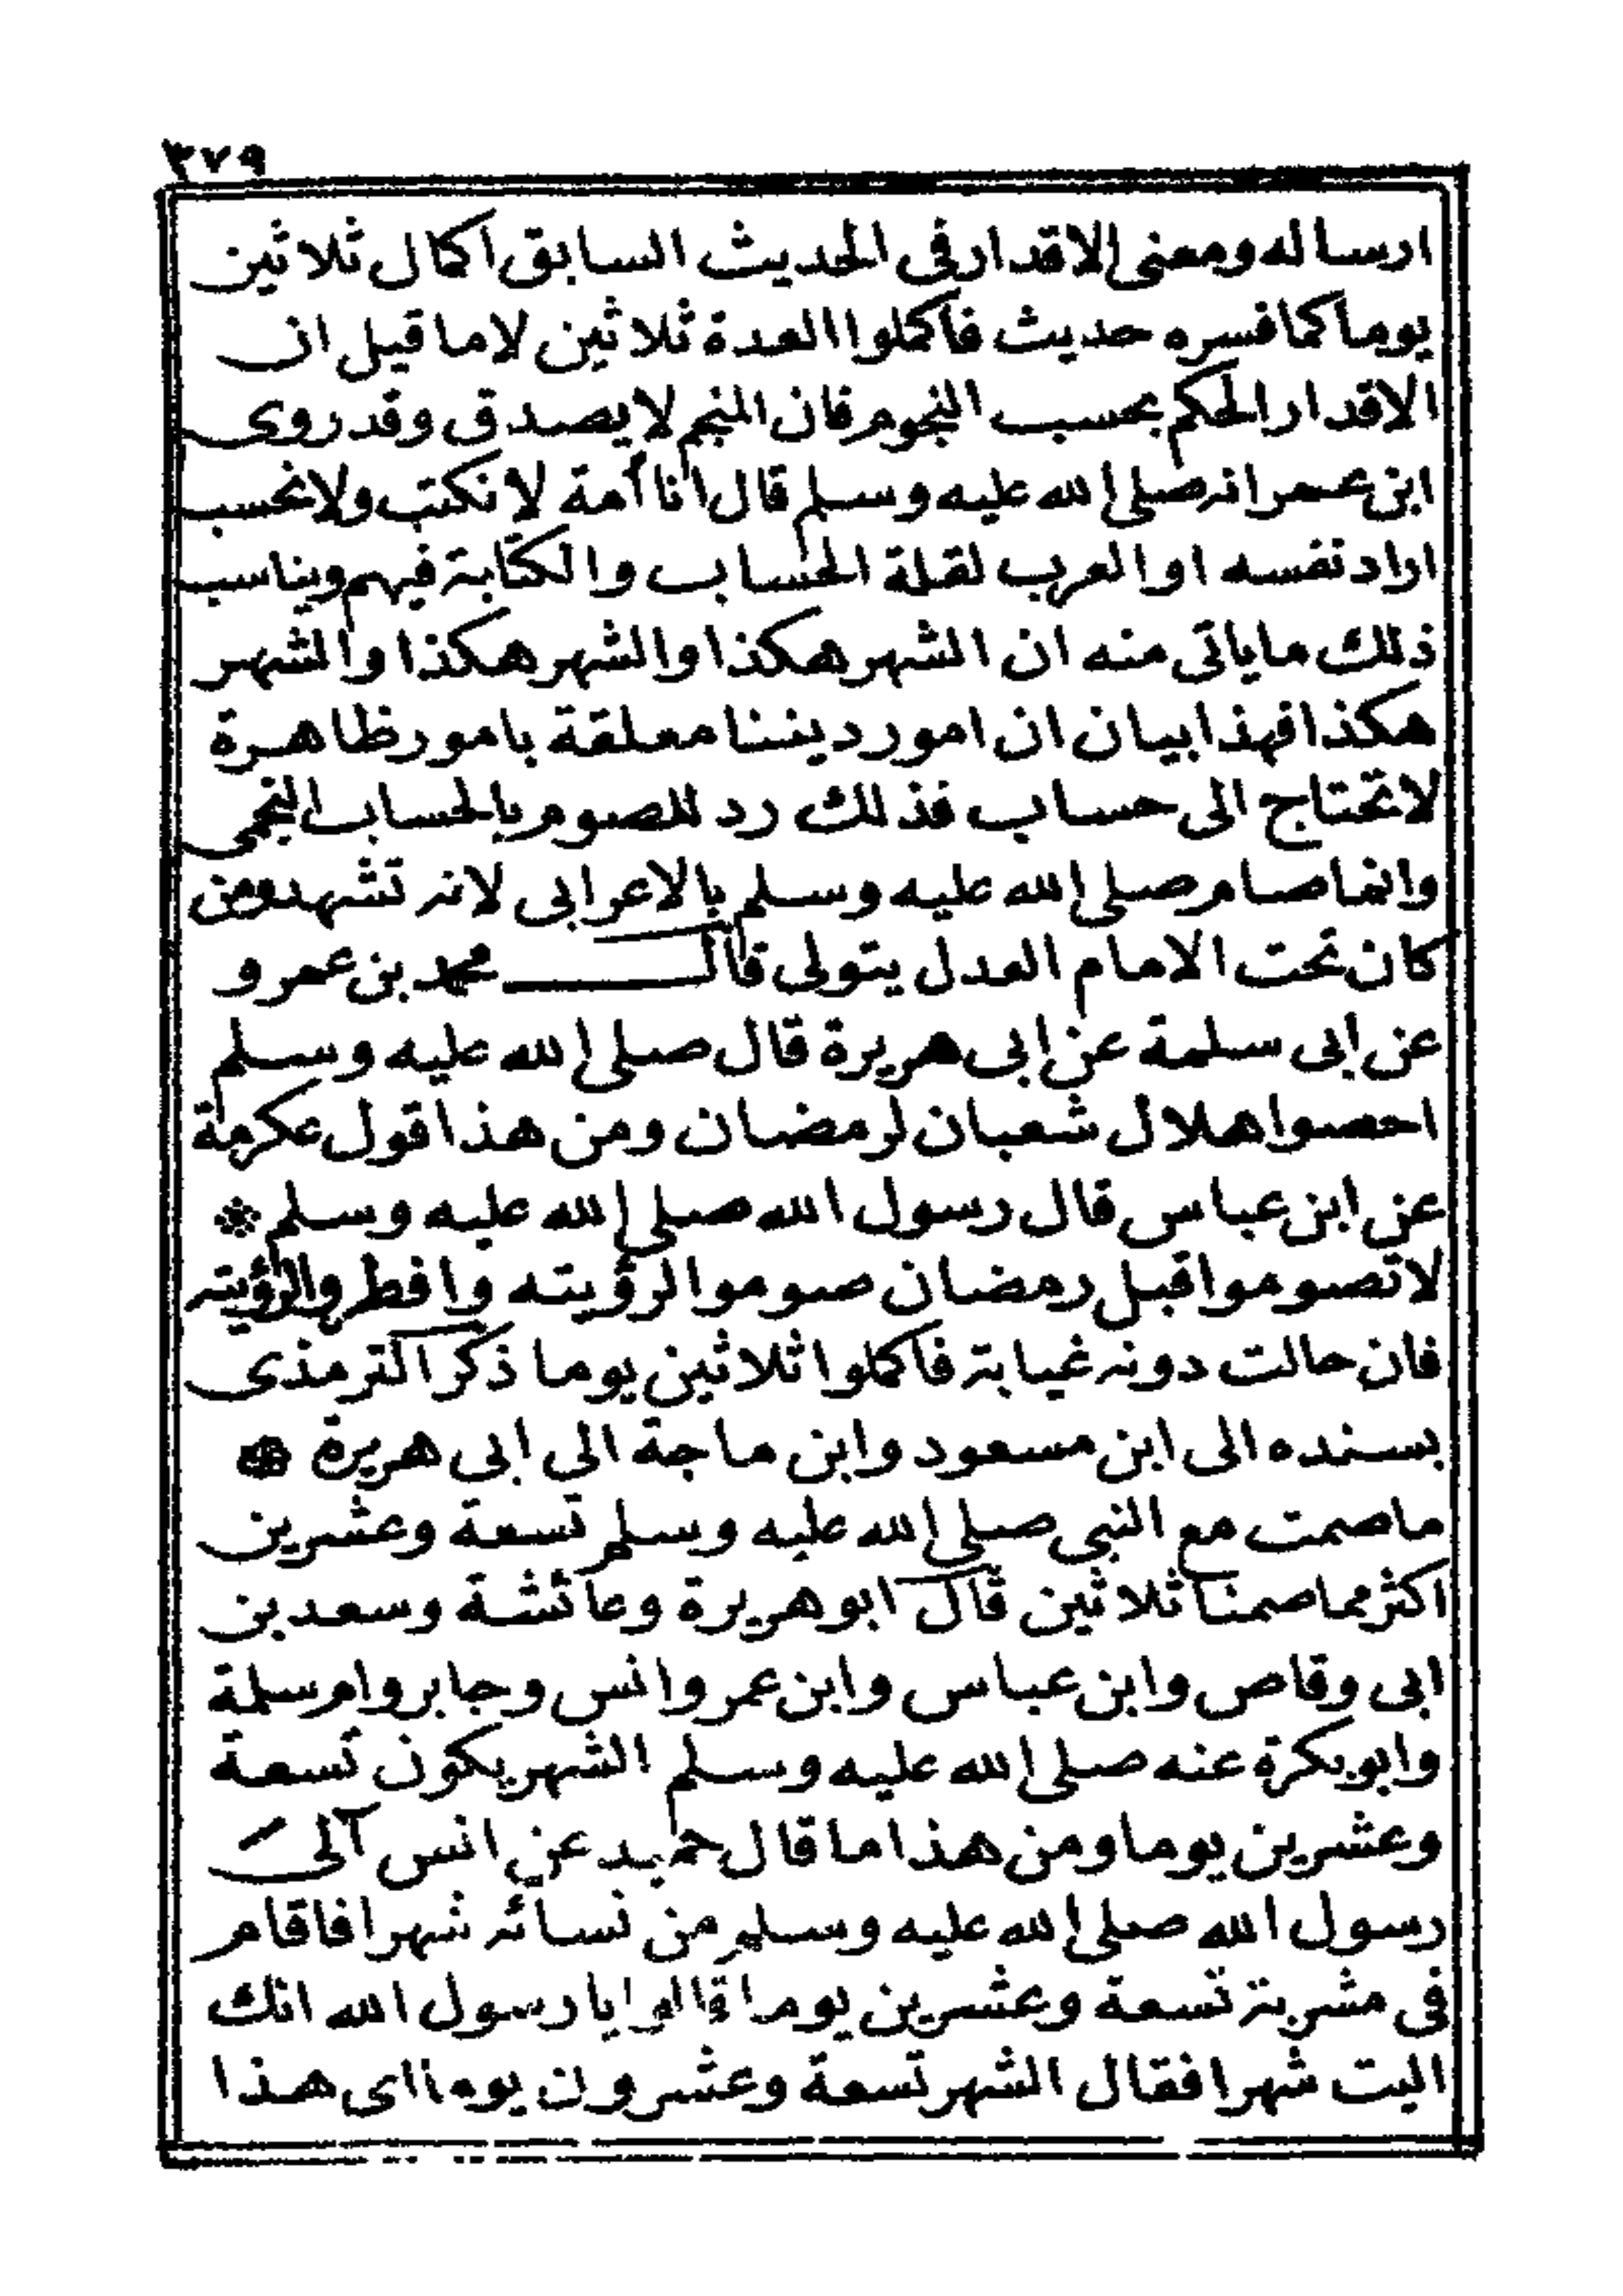 ٣٧٩
ارساله ومعنى الاقدار فى الحديث السابق اكمال ثلاثين
يوما كما فسره حديث فاكملوا العدة ثلاثين لا ما قيل ان
الاقدار الحكم بحسب النجوم فان المنجم لا يصدق وقد روى
ابن عمر انه صلى الله عليه وسلم قال انا أمة لا نكتب ولا نحسب
اراد نفسه او العرب لقلة الحساب والكتابة فيهم ويناسب
ذلك ما ياتى منه ان الشهر هكذا والشهر هكذا والشهر
هكذا فهذا بيان ان امور ديننا معلقة بامور ظاهرة
لا تحتاج الى حساب فذلك رد للصوم بالحساب النجمى
وانما صام صلى الله عليه وسلم بالاعرابى لانه تشهد ومن
كان تحت الامام العدل يتولى قال محمد بن عمرو
عن ابى سلمة عن ابى هريرة قال صلى الله عليه وسلم
احصوا هلال شعبان لرمضان ومن هذا قول عكرمة
عن ابن عباس قال رسول الله صلى الله عليه وسلم *
لا تصوموا قبل رمضان صوموا لرؤيته وافطروا لرؤيته
فان حالت دونه غيابة فاكملوا ثلاثين يوما ذكر الترمذى
بسنده الى ابن مسعود وابن ماجة الى ابى هريرة *
ما صمت مع النبى صلى الله عليه وسلم تسعة وعشرين
اكثر مما صمنا ثلاثين قال ابو هريرة وعائشة وسعد بن
ابى وقاص وابن عباس وابن عمر وانس وجابر وام سلمة
وابو بكرة عنه صلى الله عليه وسلم الشهر يكون تسعة
وعشرين يوما ومن هذا ما قال حميد عن انس آلى
رسول الله صلى الله عليه وسلم من نسائه شهرا فاقام
فى مشربة تسعة وعشرين يوما قالوا يا رسول الله انك
اليت شهرا فقال الشهر تسعة وعشرون يوما اى هذا